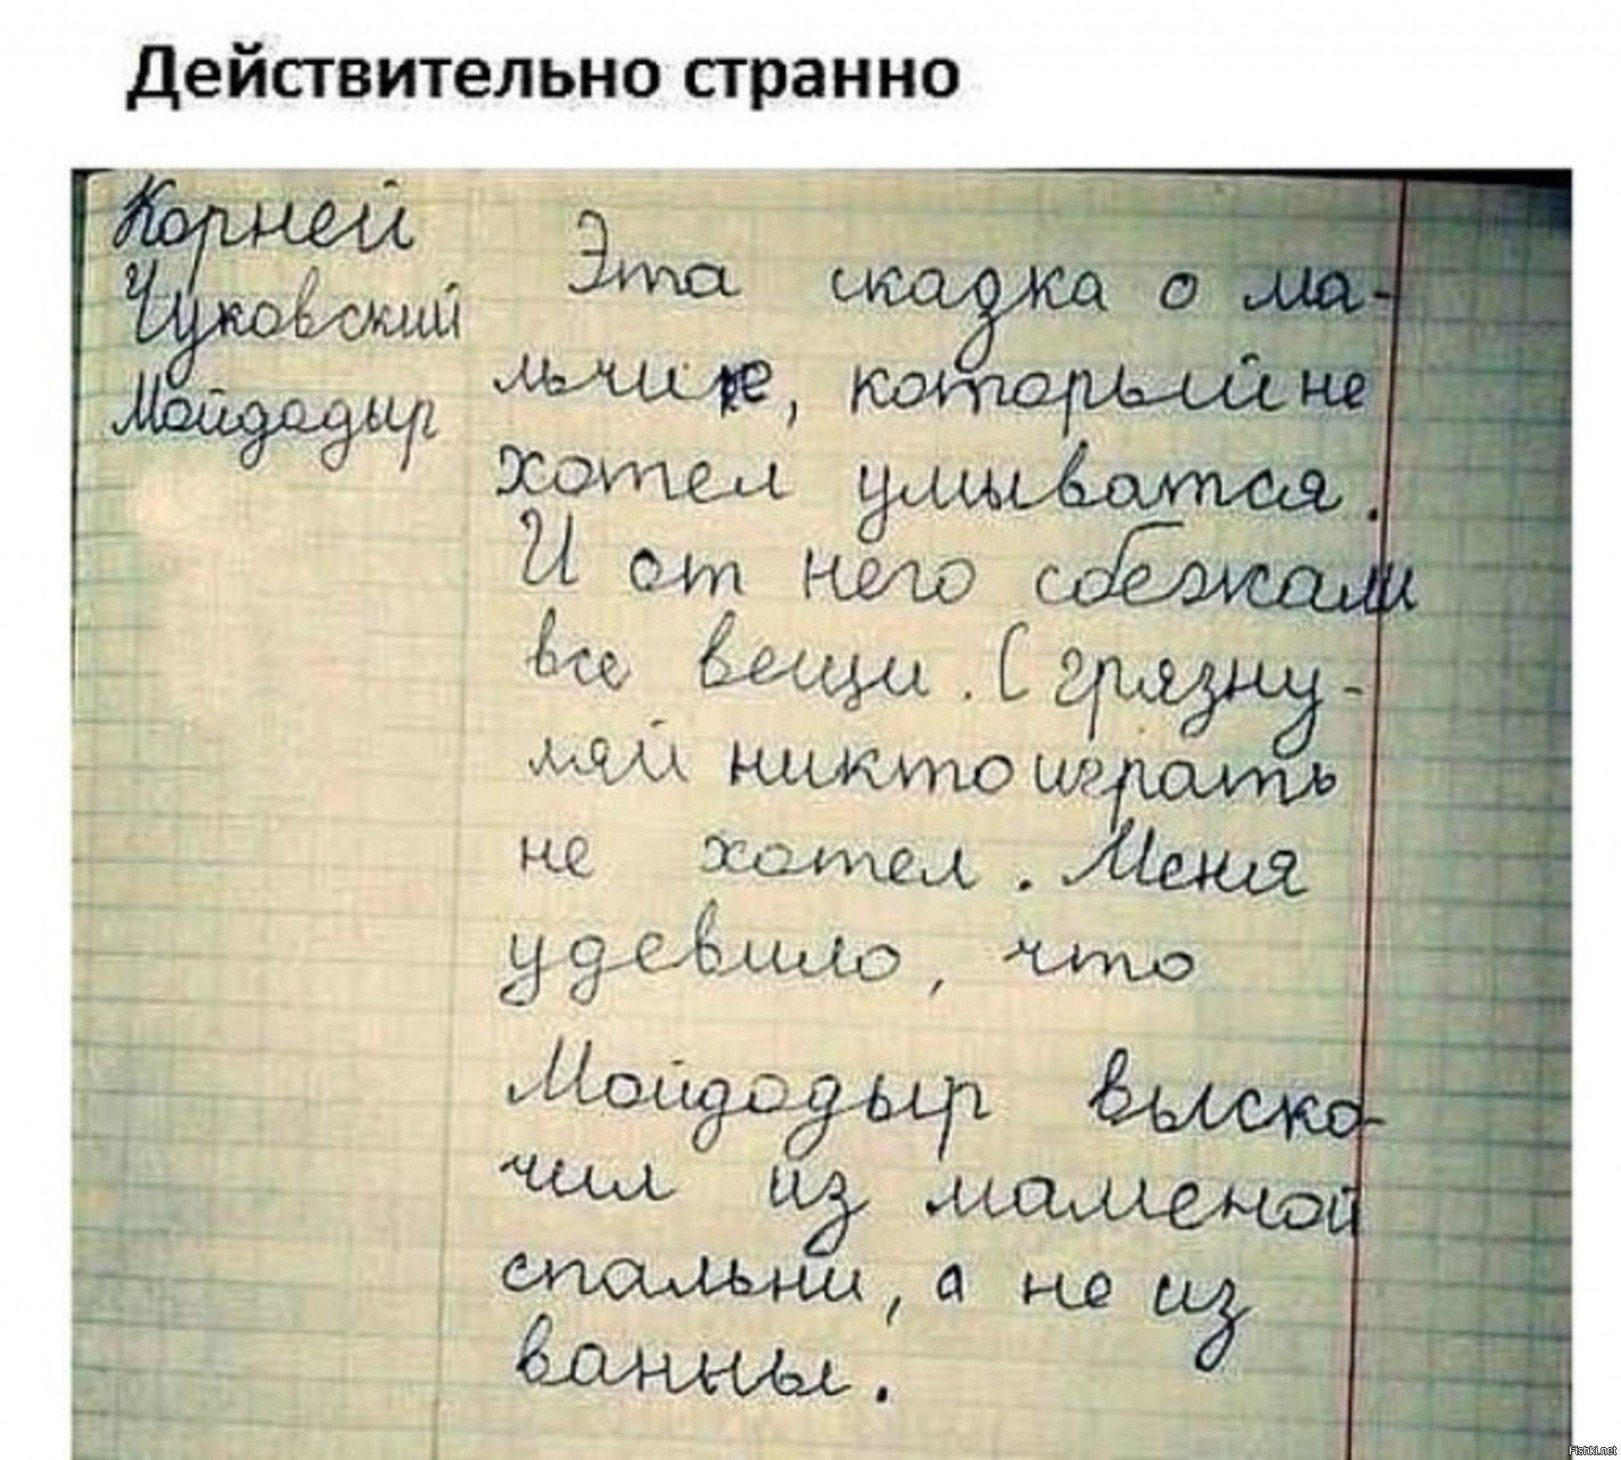 Действительно странно
Корней
Чуковский
Мойдодыр
Эта скадка о ма-
льчике, который не
хотел умыватся.
И от него сбежали
все вещи. С грязну-
ляй никто играть
не хотел. Меня
удевило, что
Мойдодыр выско-
чил из маменой
спальни, а не из
ванны.
Fishki.net